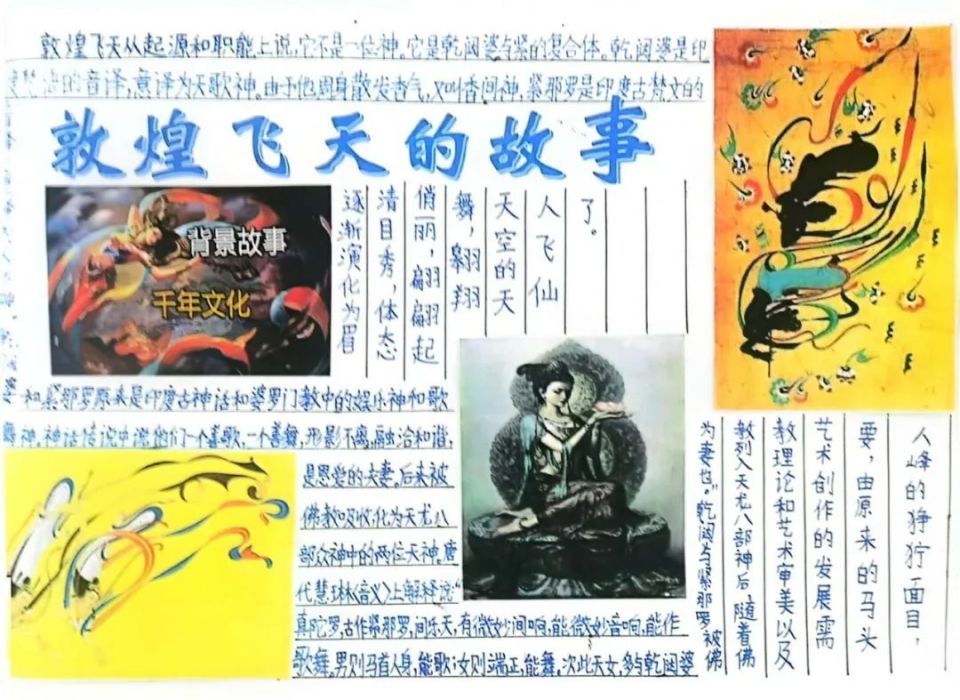 敦煌飞天从起源和职能上说,它不是一位神。它是乾闼婆与紧的复合体。乾闼婆是印
的音译,意译为天歌神。由于他周身散发香气,又叫香间神,紧那罗是印度古梵文的
敦煌飞天的故事
背景故事
千年文化
和紧那罗原来是印度古神话和婆罗门教中的娱乐神和歌
神。神话传说中说他们一个善歌,一个善舞,形影不离,融洽和谐,
是恩爱的夫妻。后来被
佛教吸收,化为天尤八
部众神中的两位天神。唐
代慧琳《音义》上解释说:“
真陀罗,古作紧那罗,间乐天,有微妙间响,能微妙音响,能作
歌舞。男则马首人身,能歌;女则端正,能舞。次此天女,多与乾闼婆
为妻也。”乾闼与紧那罗被佛
教列入天尤八部神后,随着佛
教理论和艺术审美以及
艺术创作的发展需
要,由原来的马头
人峰的狰狞面目,
逐渐演化为眉
清目秀,体态
俏丽,翩翩起
舞,翱翔
天空的天
人飞仙
了。